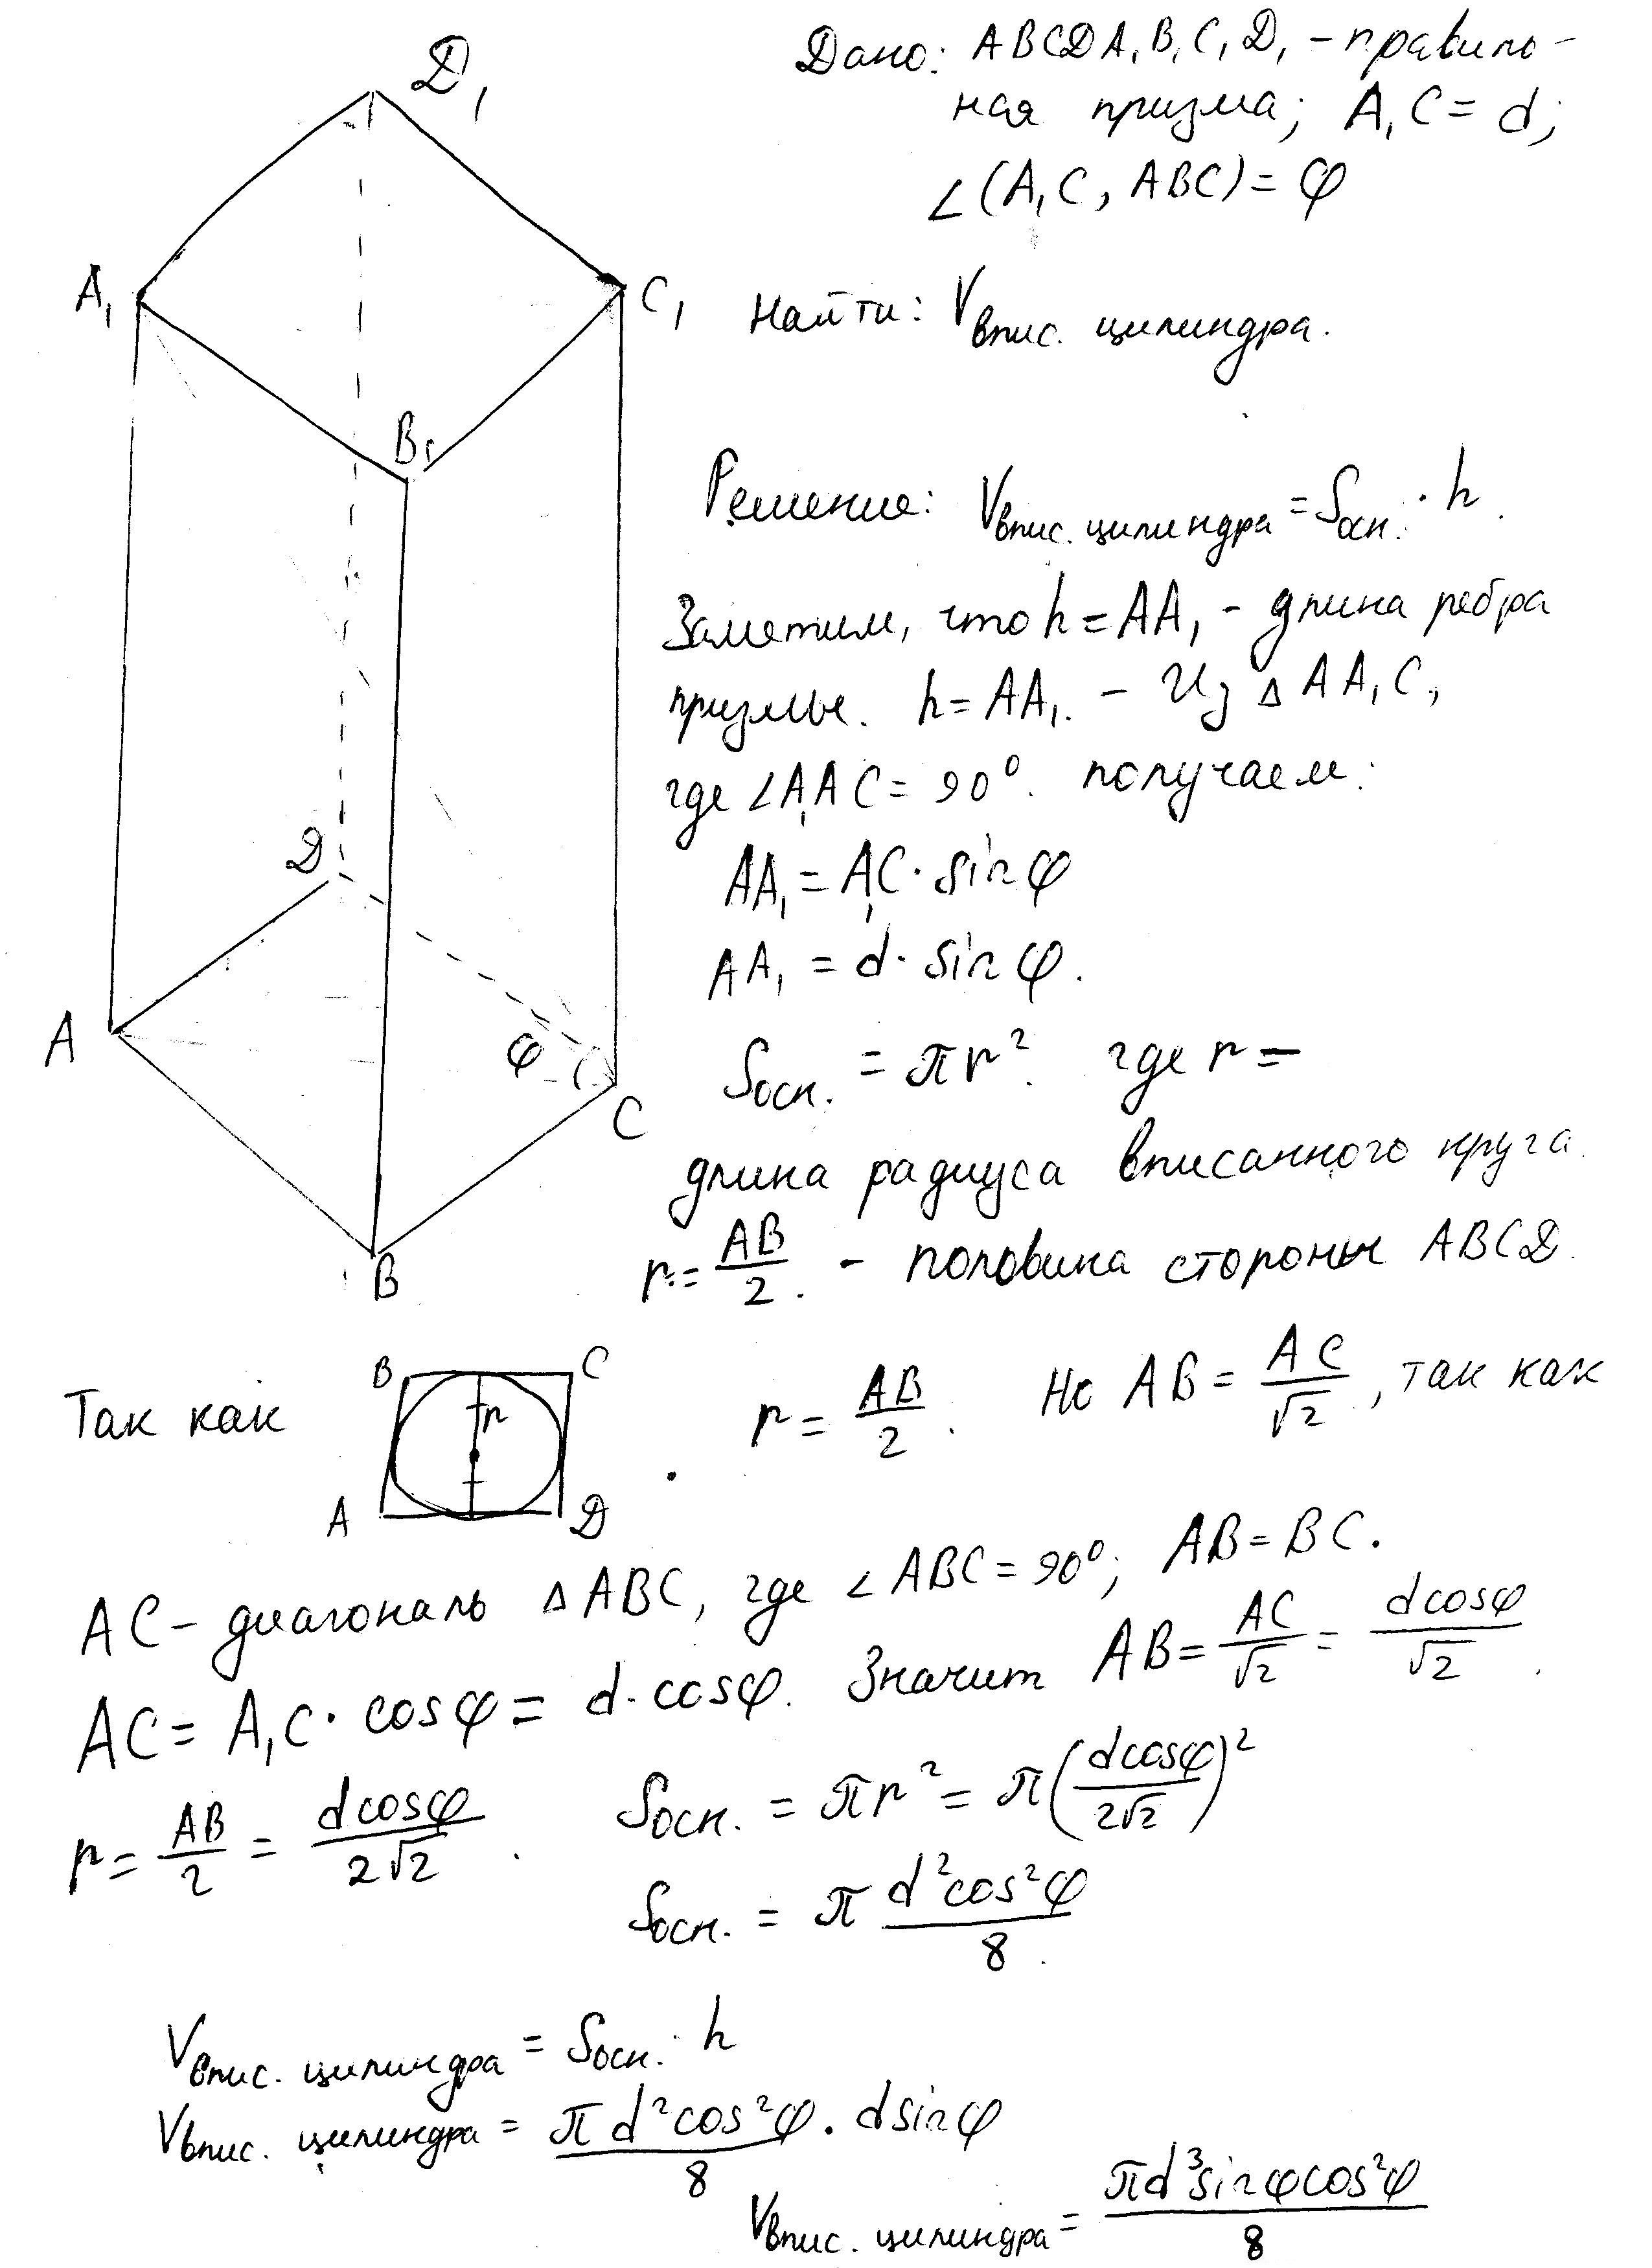 Дано: ABCDA₁B₁C₁D₁ - правиль-
ная призма; A₁C = d;
∠(A₁C, ABC) = φ
Найти: Vвпис. цилиндра.
D₁
A₁
C₁
B₁
D
A
φ
C
B
Решение: Vвпис. цилиндра = Sосн. · h.
Заметим, что h = AA₁ - длина ребра
призмы. h = AA₁. - Из △AA₁C,
где ∠A₁AC = 90°. получаем:
AA₁ = A₁C · sin φ
AA₁ = d · sin φ.
Sосн. = πr². где r =
длина радиуса вписанного круга.
r = AB/2. - половина стороны ABCD.
Так как
B C
r
A D
. r = AB/2. Но AB = AC/√2, так как
AC - диагональ △ABC, где ∠ABC = 90°; AB = BC.
AC = A₁C · cos φ = d · cos φ. Значит AB = AC/√2 = d cos φ/√2.
r = AB/2 = d cos φ/2√2. Sосн. = πr² = π(d cos φ/2√2)²
Sосн. = π d² cos² φ/8.
Vвпис. цилиндра = Sосн. · h
Vвпис. цилиндра = π d² cos² φ/8 · d sin φ
Vвпис. цилиндра = π d³ sin φ cos² φ/8